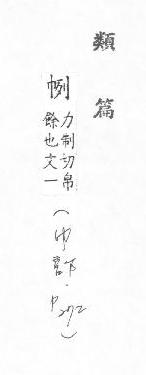 類篇
力制切帛
餘也文一
(巾部·P272)